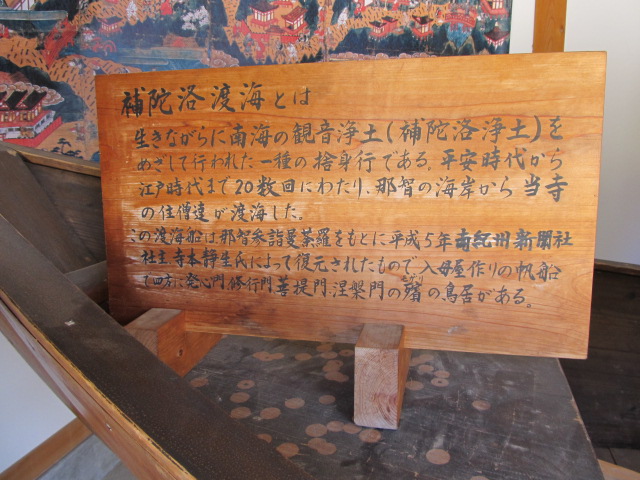 補陀洛渡海とは
生きながらに南海の観音浄土(補陀洛浄土)を
めざして行われた一種の捨身行である。平安時代から
江戸時代まで20数回にわたり、那智の海岸から当寺
の住僧達が渡海した。
この渡海船は那智参詣曼荼羅をもとに平成5年南紀州新聞社
社主寺本静生氏によって復元されたもので入母屋作りの帆船
で四方に発心門、修行門、菩提門、涅槃門の殯の鳥居がある。